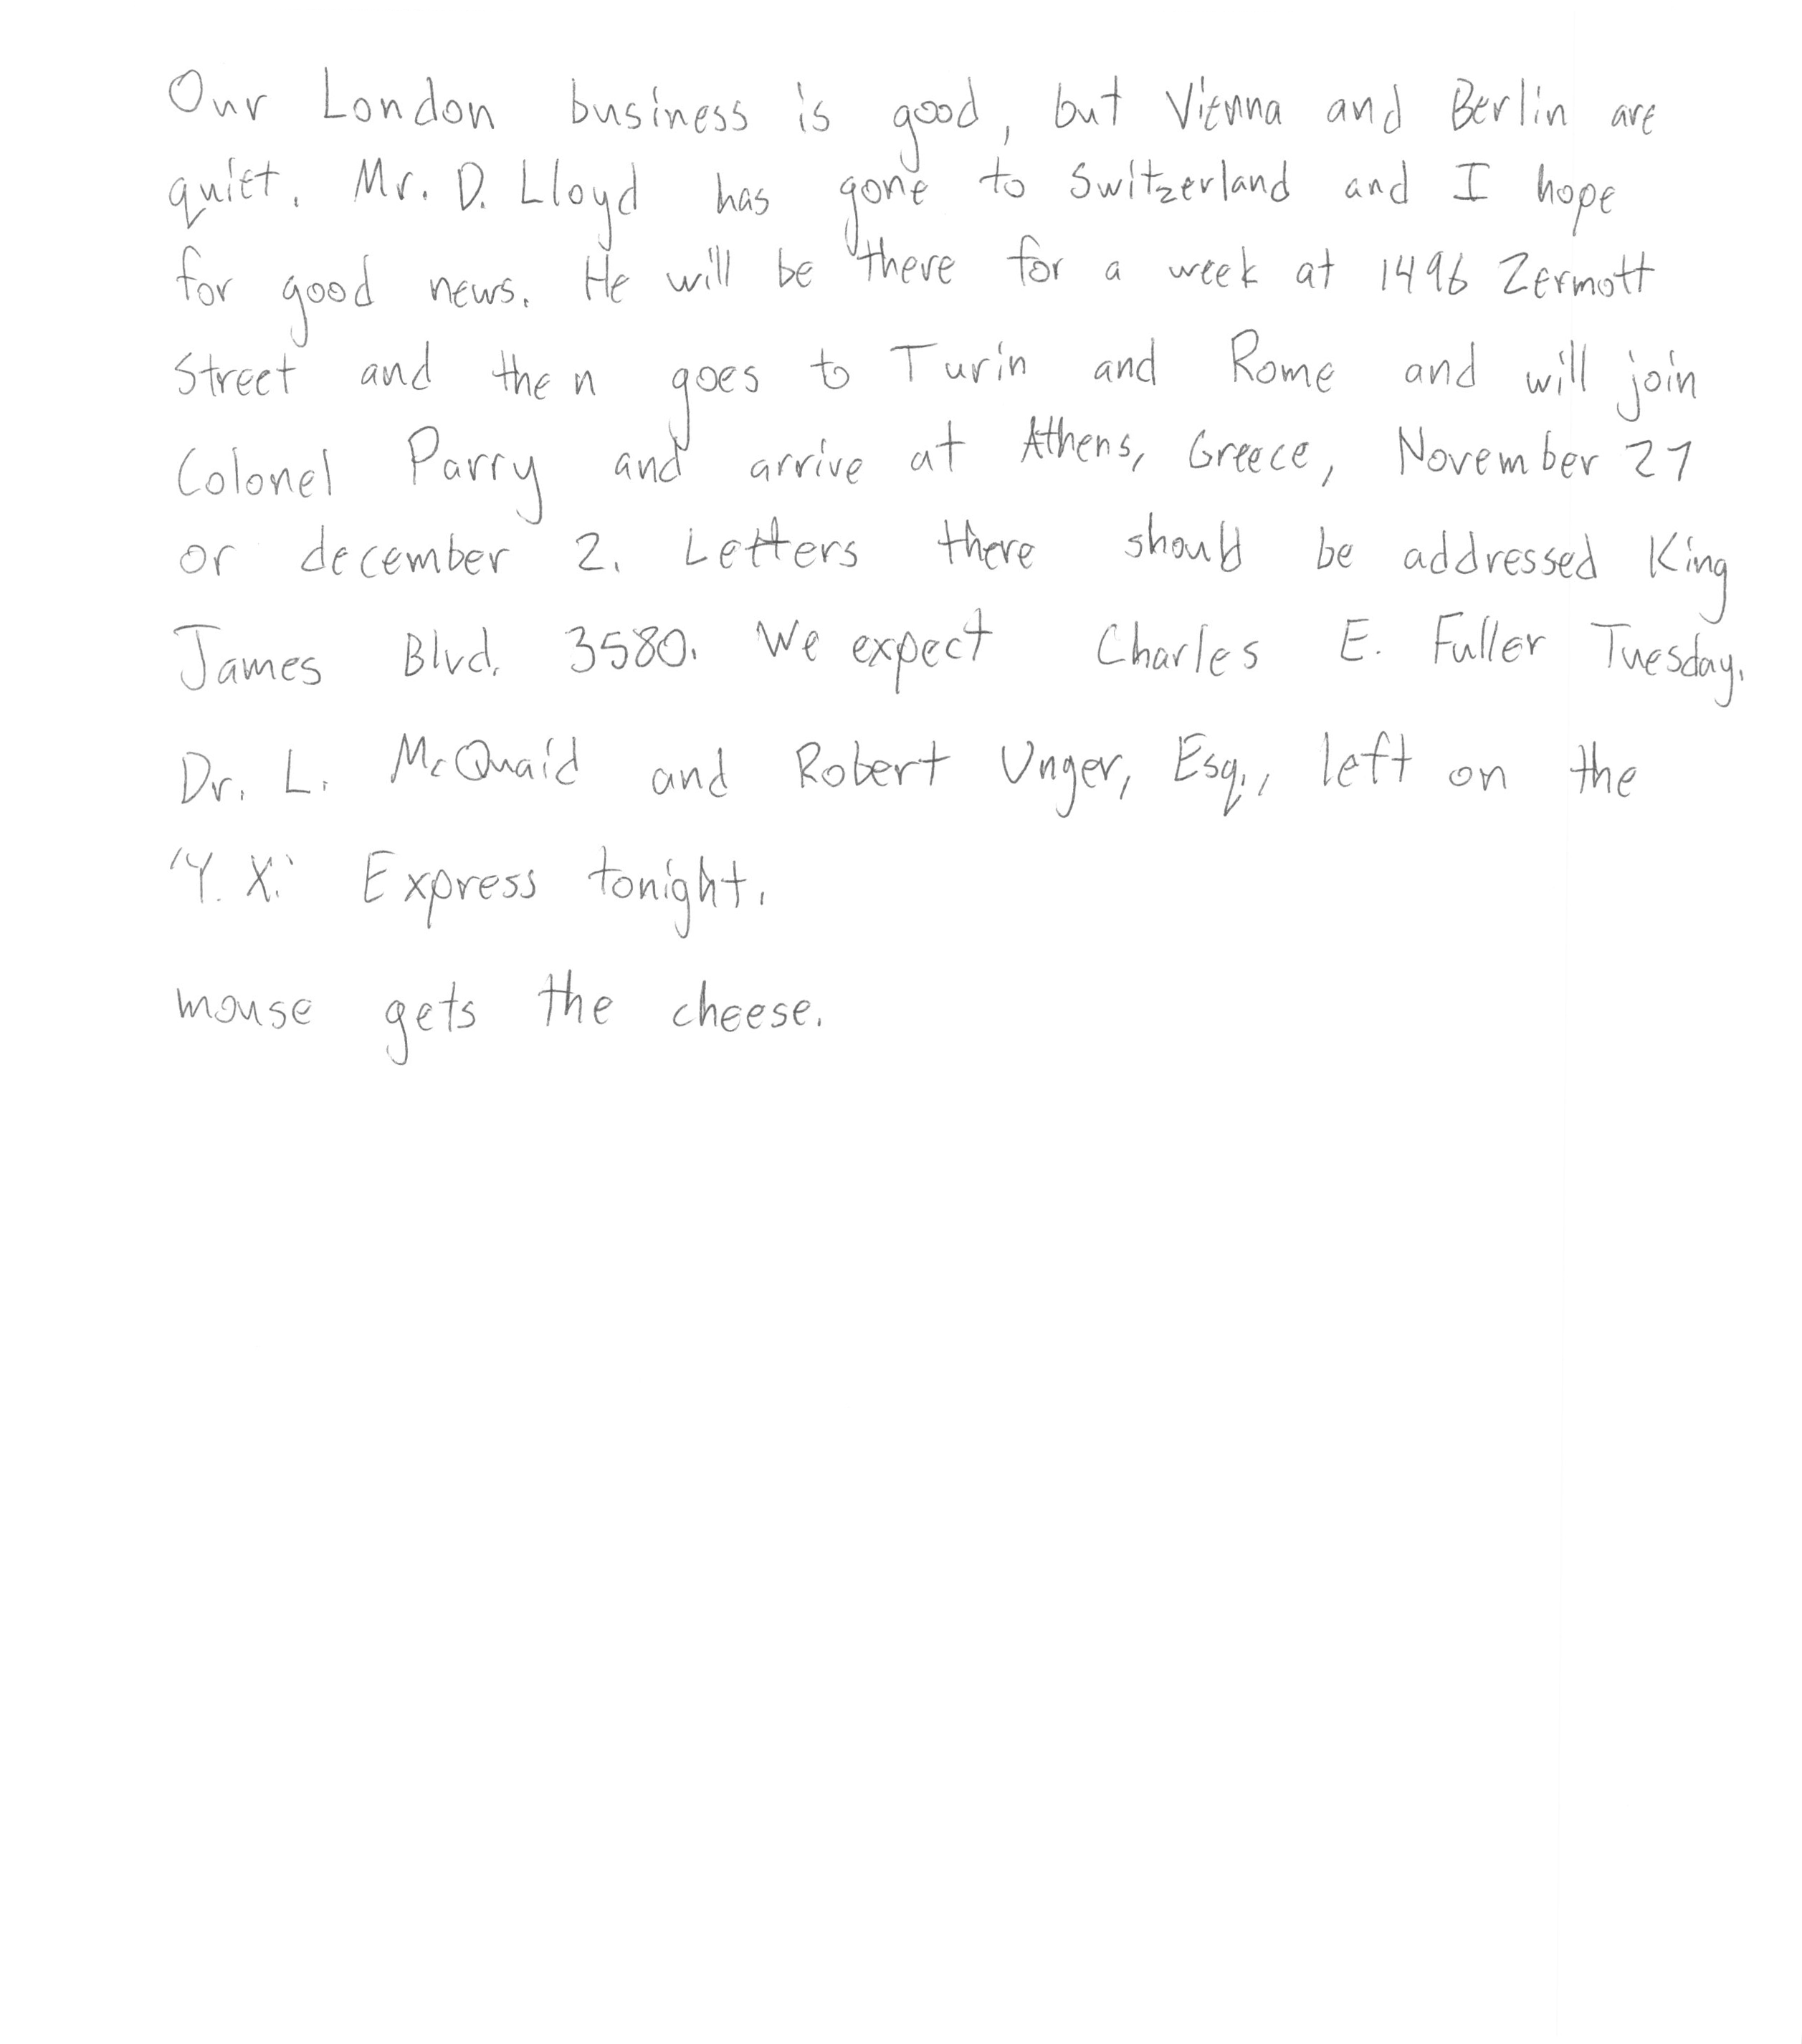 Our London business is good, but Vienna and Berlin are
quiet. Mr. D. Lloyd has gone to Switzerland and I hope
for good news. He will be there for a week at 1496 Zermott
Street and then goes to Turin and Rome and will join
Colonel Parry and arrive at Athens, Greece, November 27
or december 2. Letters there should be addressed King
James Blvd. 3580. We expect Charles E. Fuller Tuesday.
Dr. L. McQuaid and Robert Unger, Esq., left on the
'Y. X.' Express tonight.
mouse gets the cheese.